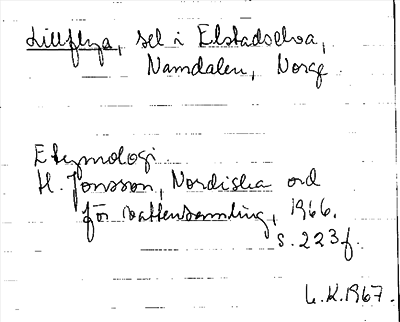 Lillflya, sel i Elstadselva,
Namdalen, Norge
Etymologi
H. Jonsson, Nordiska ord
för vattensamling, 1966.
s. 223 f.
L.K. 1967.